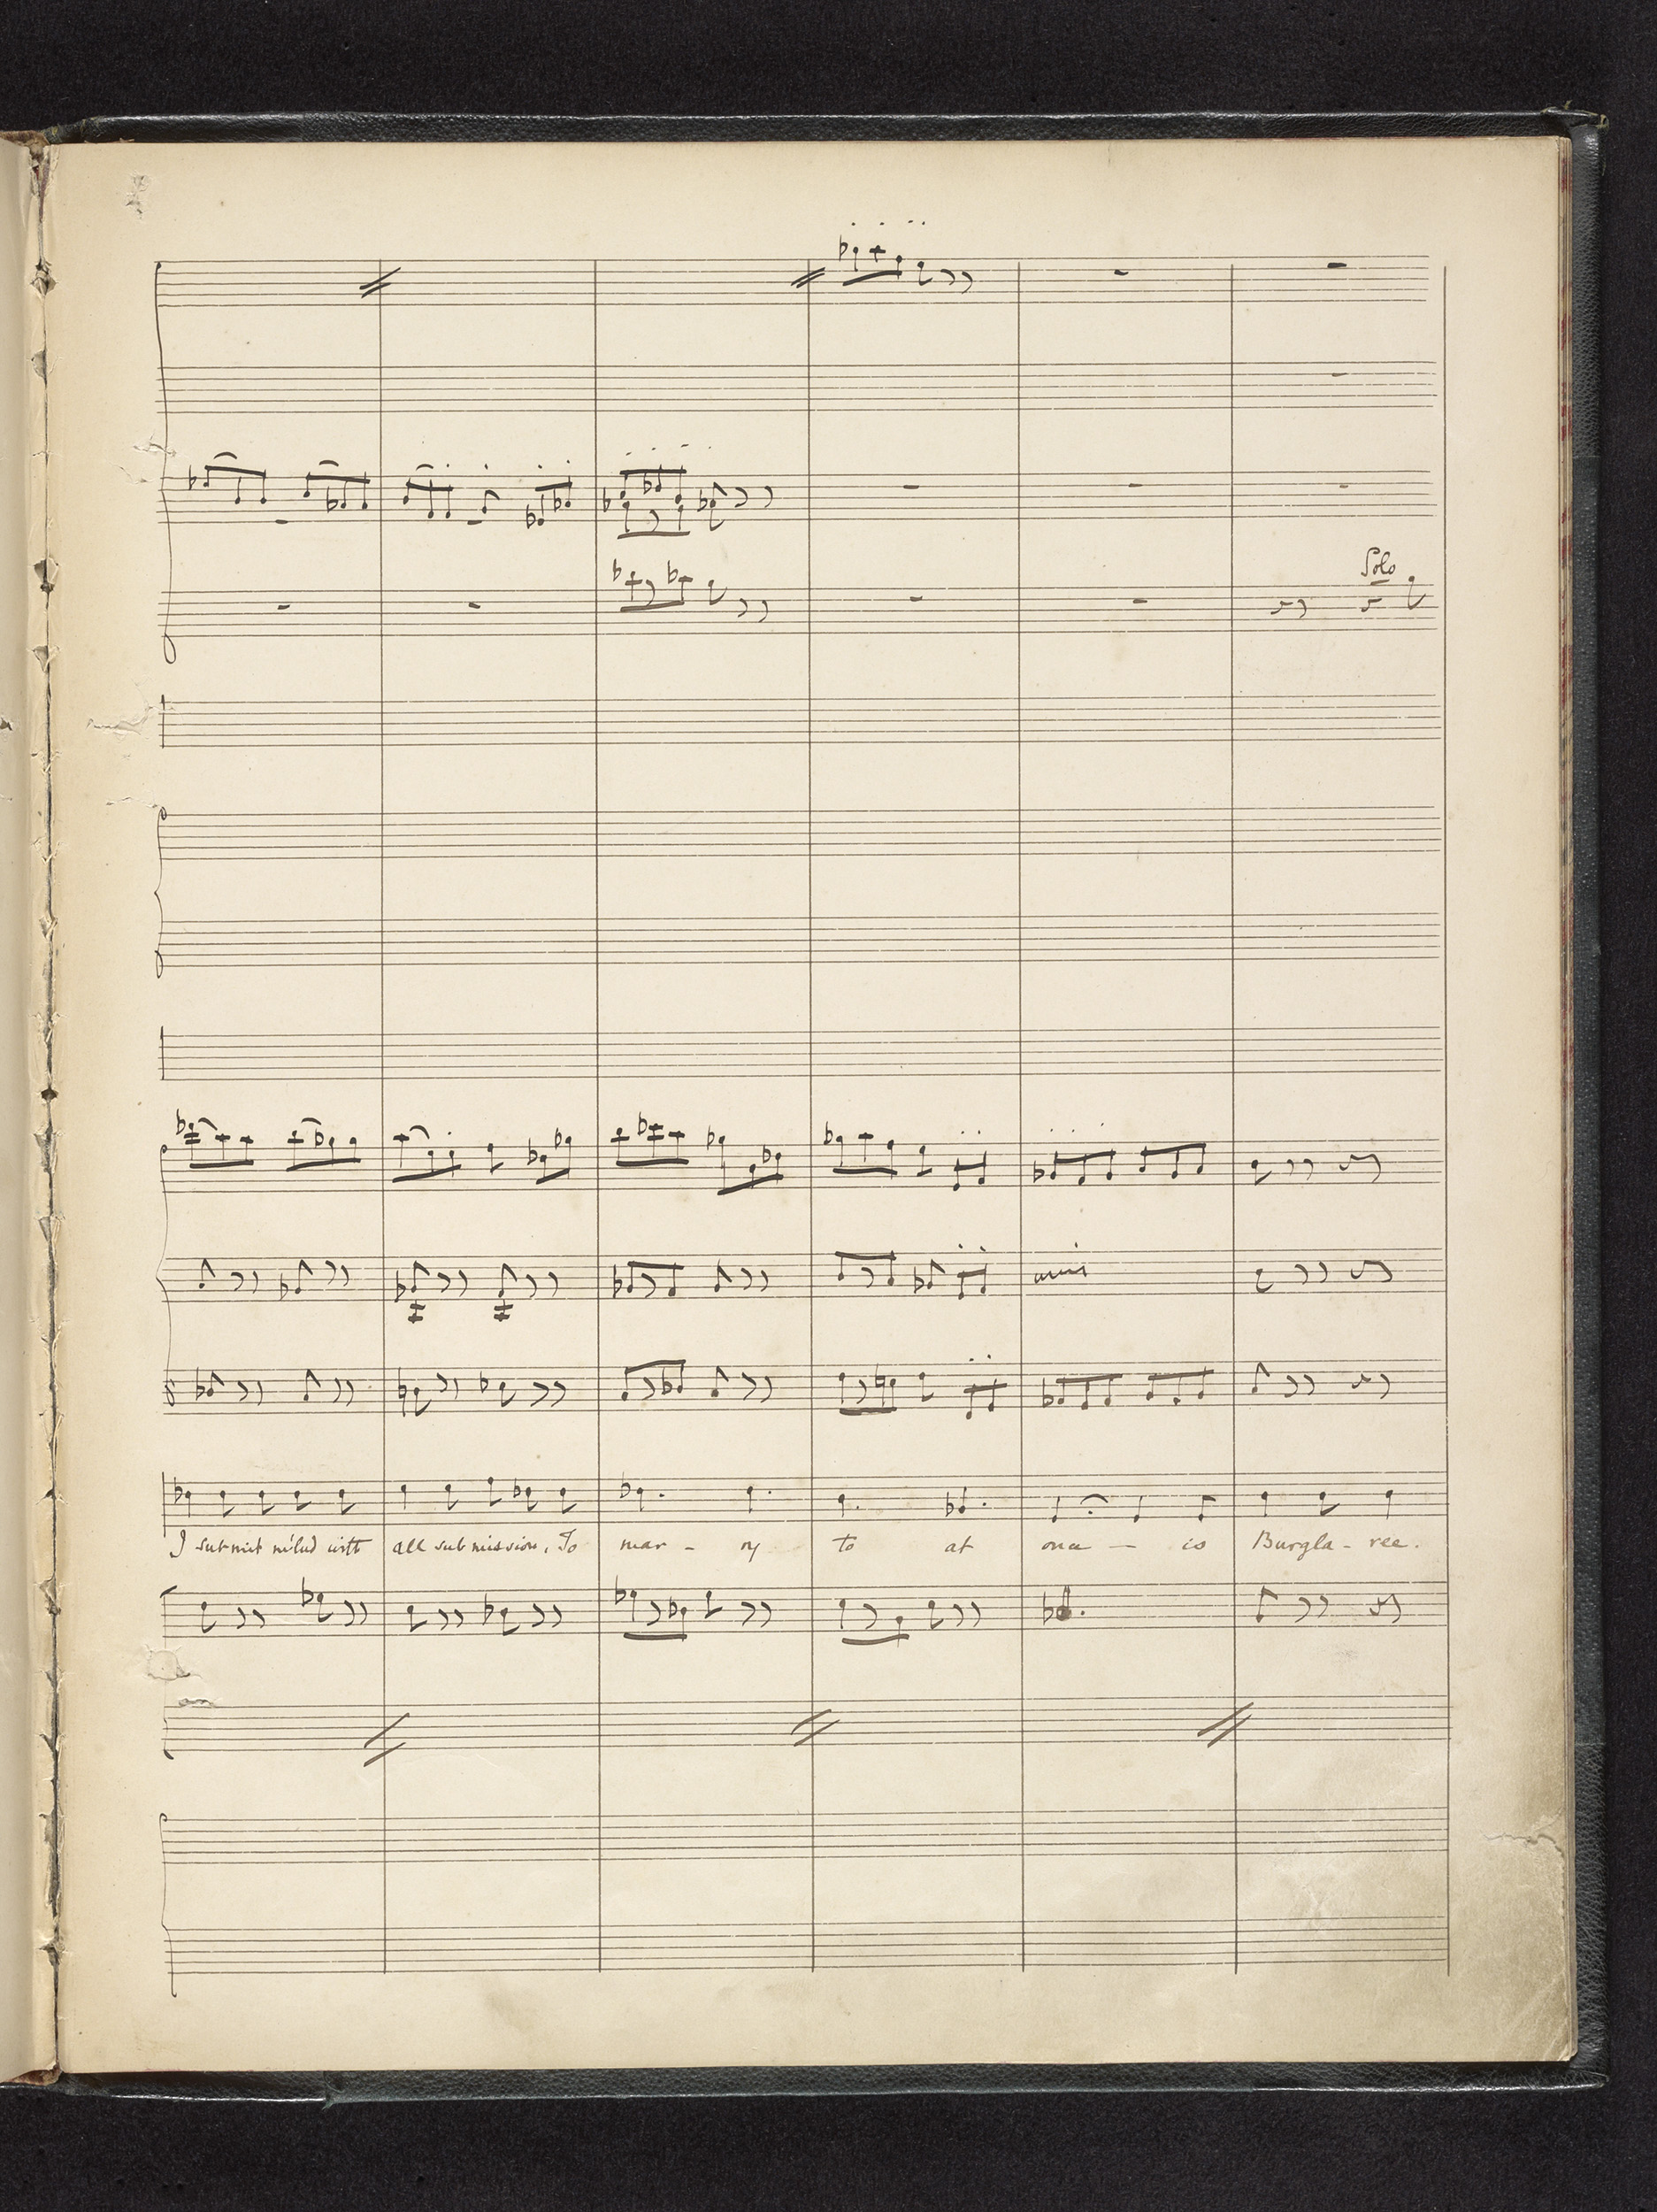 Solo
unis
I submit m'lud with all submission, To mar - ry to at once — is Burgla - ree.